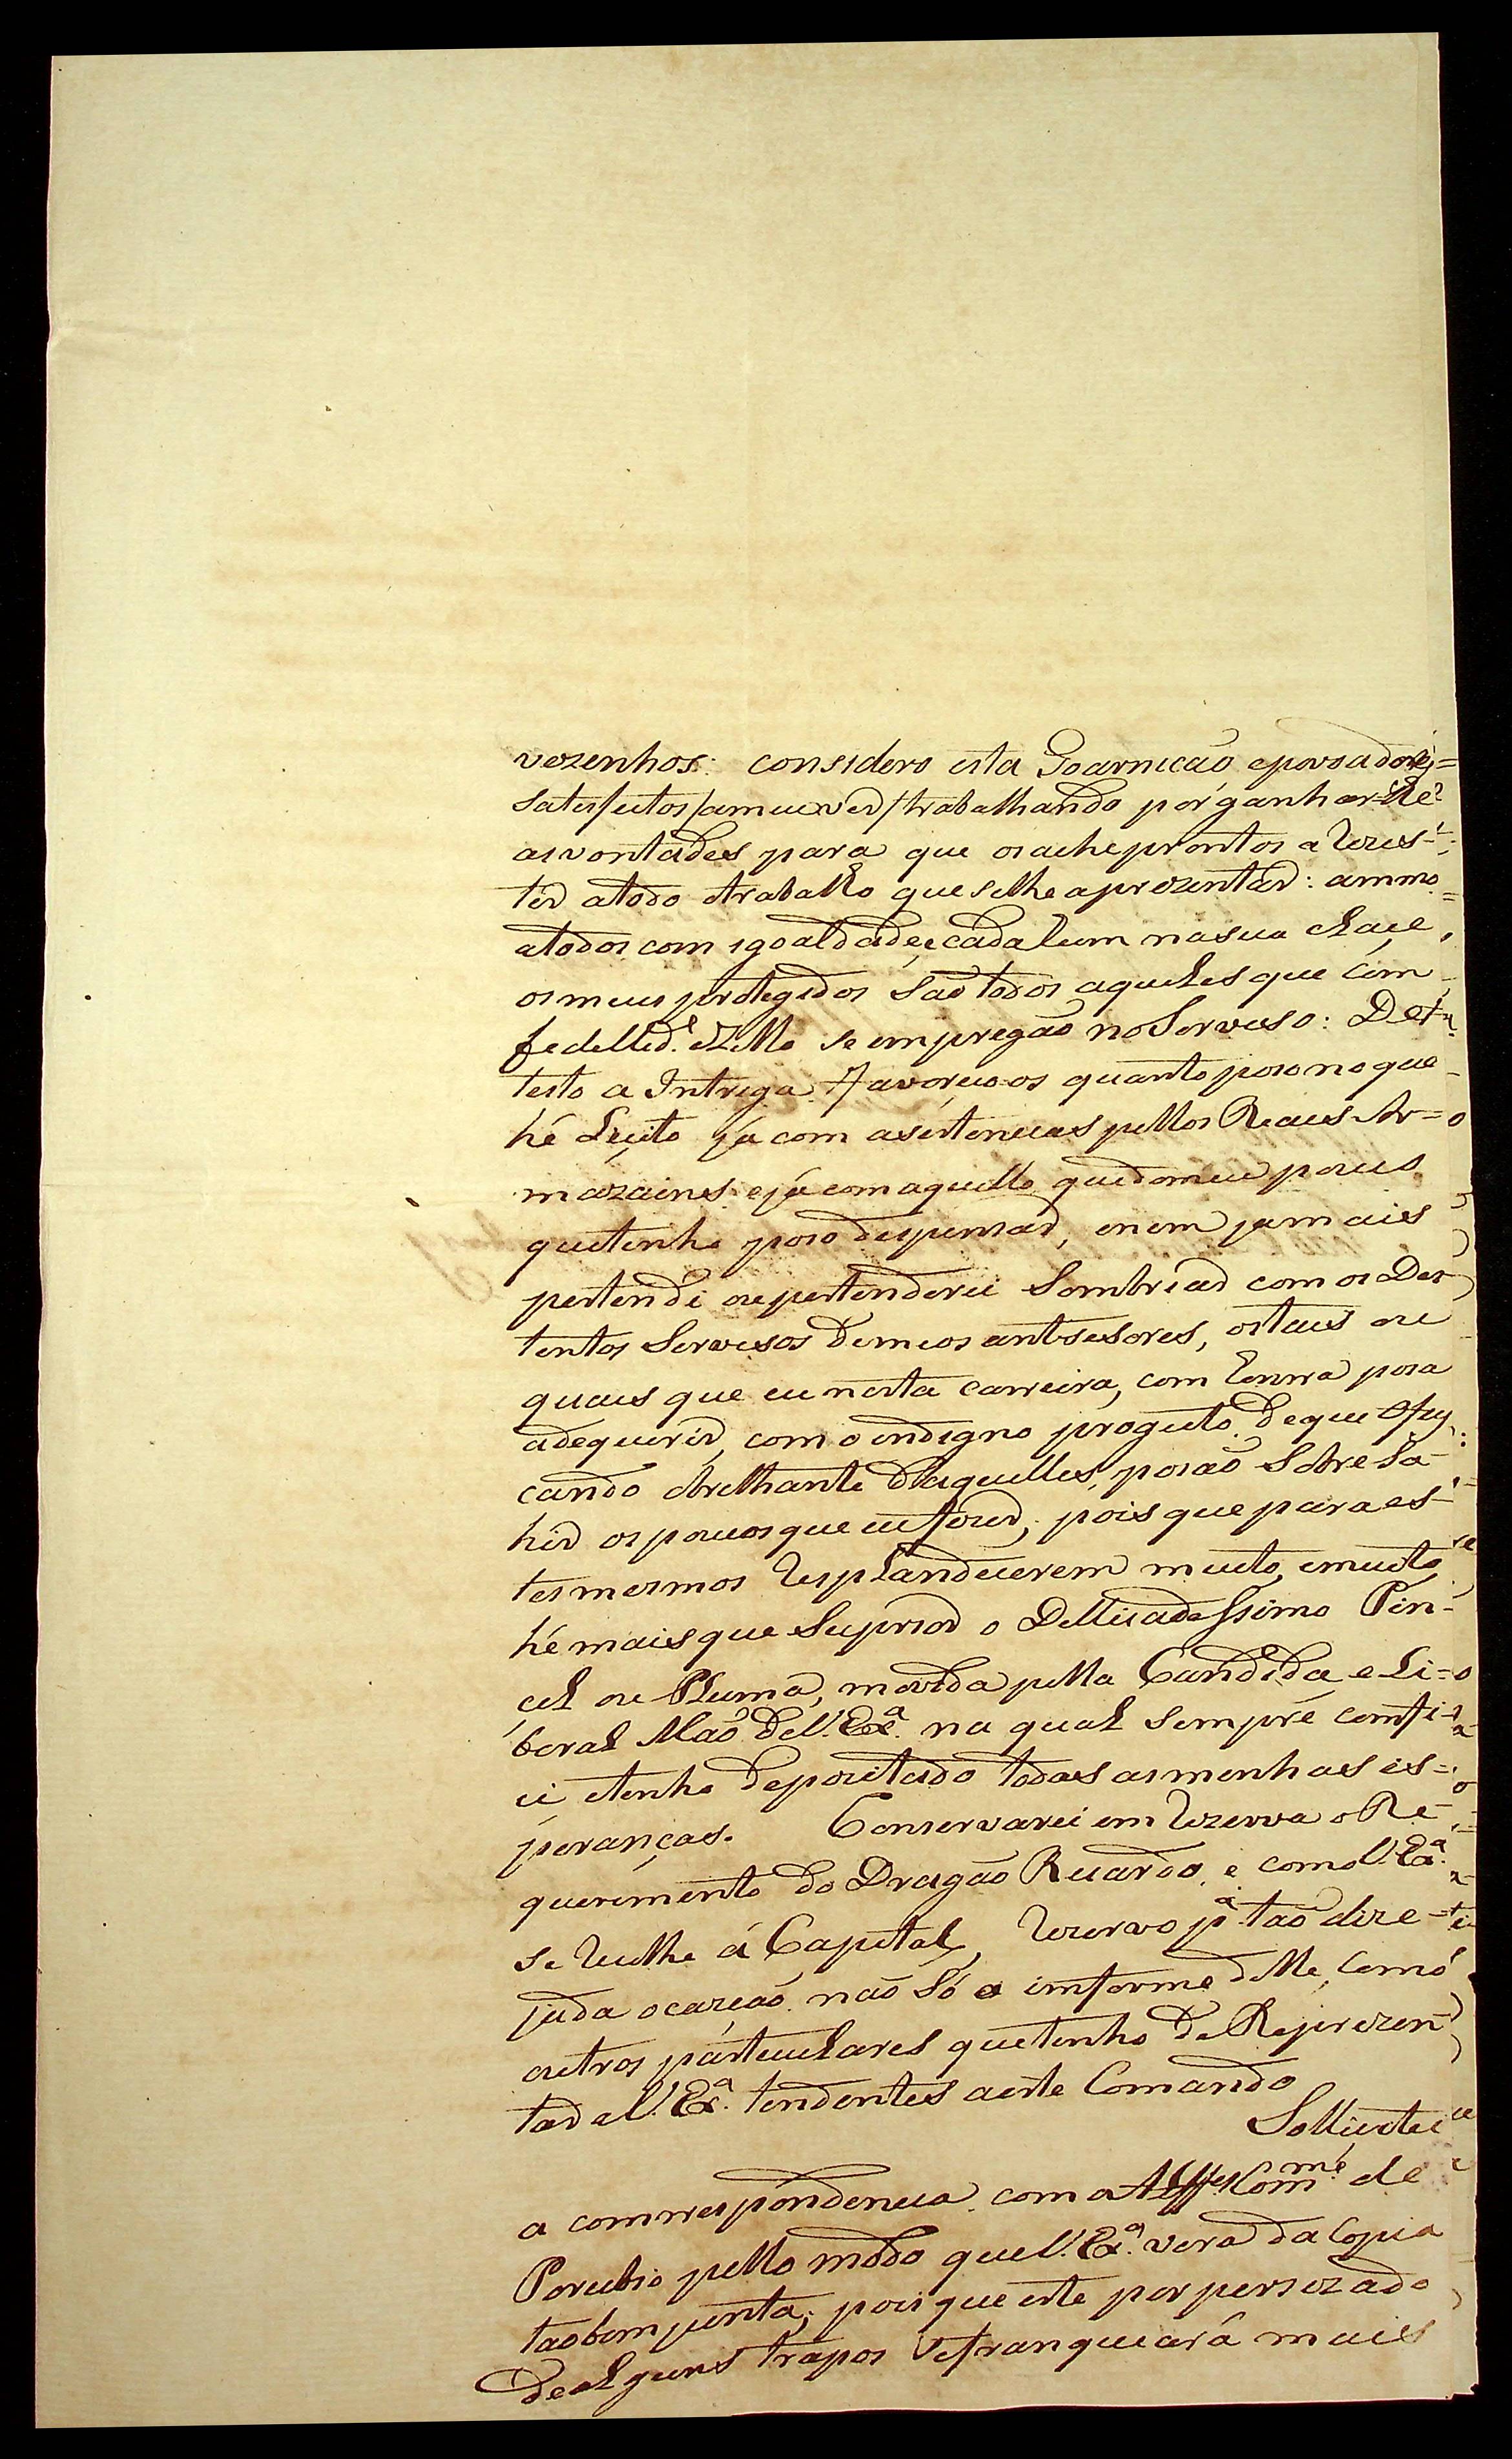 vezenhos: considero esta Goarnicaõ epovoadores
satesfeitos /ameuver/ trabalhando por ganhar-lhe
asvontades para que osacheprontos a Rezes-
ter atodo otrabalho queselheaprezentar: ammo
atodos com igoaldade, ecadahum nasua claçe,
osmeus protegidos saõ todos aquelles que com
fedellid.e eZello se empregaõ noServiso: Det-
testo a Intriga: Favoreçoos quanto poso noque
hé Leçito já com asestencias pellos Reaes Ar-
mazaines: ejá comaquillo quedomeu pouco
quetenho poso despensar, enem jamais
pertendi ou pertenderei Sombriar com os Des-
tentos Servesos demeos antesesores, ostaes ou
quaes que eu nesta carreira, com honra posa
adequerir, com o indigno progeto, deque Ofus-
cando obrelhante daquelles, posaõ Sobresa-
hir os poucos que eu fizer; pois que para es-
tes mesmos Resplandecerem muito, emuito
hé mais que Suprior o Dellicadessimo Pin-
çel ou Pluma, movida pella Candida e Li-
beral Maõ deV. Ex.a na qual sempre comfi-
ei etenho depozitado todas asmenhas es-
peranças. Conservarei em Rezerva o Re-
querimento do Dragaõ Ricardo, e comoV. Ex.a
se Recolhe á Capital, Rezervo p.a taõ dize-
jada ocaziaõ naõ Só o imforme delle, como
outros particulares quetenho de Reprezen
tar aV. Ex.a tendentes aeste Comando
Sollicitei
a comrrespondencia com o Alff.es Com.me de
Porubio pello modo queV. Ex.a vera da Copia
taobem junta; pois que este por persezado
dealguns trapos Sefranqueará mais